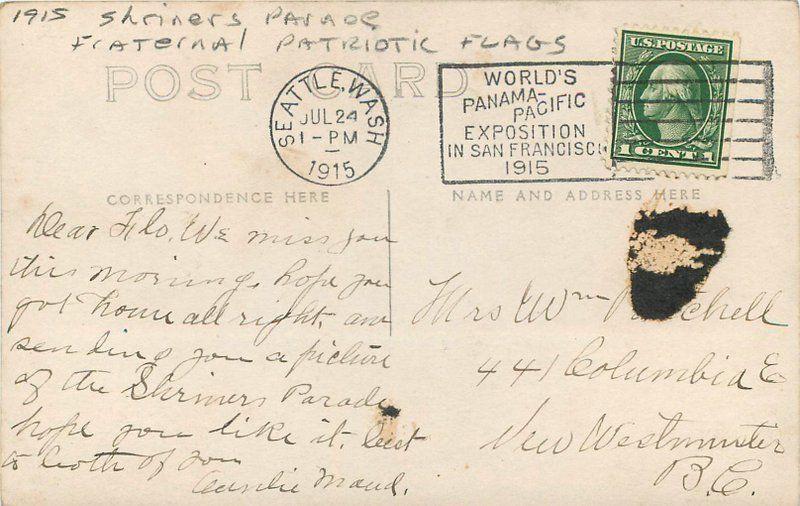 1915 Shriners Parade
Fraternal Patriotic Flags
POST CARD
SEATTLE, WASH.
JUL 24
1-PM
1915
WORLD'S
PANAMA-
PACIFIC
EXPOSITION
IN SAN FRANCISCO
1915
U.S. POSTAGE
1 CENT 1
CORRESPONDENCE HERE
NAME AND ADDRESS HERE
Dear Flo, We miss you
this morning, hope you
got home all right, am
sending you a picture
of the Shriners Parade
hope you like it. best
to both of you
Auntie Maud.
Mrs Wm
441 Columbia E
New Westminster
B.C.